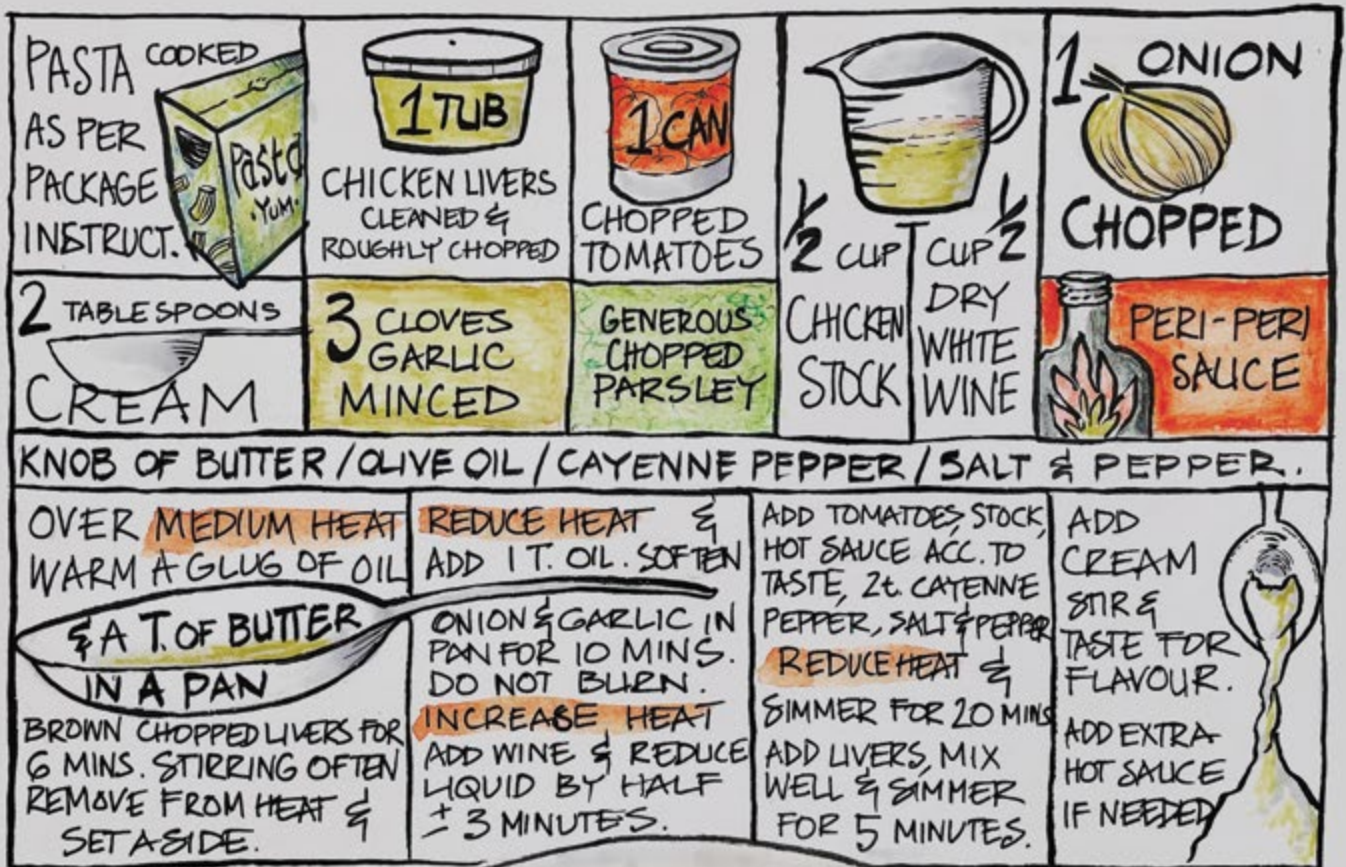 PASTA COOKED
AS PER
PACKAGE
INSTRUCT.
Pasta
·YUM·
1 TUB
CHICKEN LIVERS
CLEANED &
ROUGHLY CHOPPED
1 CAN
CHOPPED
TOMATOES
1/2 CUP
CHICKEN
STOCK
CUP 1/2
DRY
WHITE
WINE
1 ONION
CHOPPED
2 TABLESPOONS
CREAM
3 CLOVES
GARLIC
MINCED
GENEROUS
CHOPPED
PARSLEY
PERI-PERI
SAUCE
KNOB OF BUTTER/OLIVE OIL/CAYENNE PEPPER/SALT & PEPPER.
OVER MEDIUM HEAT
WARM A GLUG OF OIL
& A T. OF BUTTER
IN A PAN
BROWN CHOPPED LIVERS FOR
6 MINS. STIRRING OFTEN
REMOVE FROM HEAT &
SET ASIDE.
REDUCE HEAT &
ADD 1 T. OIL. SOFTEN
ONION & GARLIC IN
PAN FOR 10 MINS.
DO NOT BURN.
INCREASE HEAT
ADD WINE & REDUCE
LIQUID BY HALF
± 3 MINUTES.
ADD TOMATOES, STOCK,
HOT SAUCE ACC. TO
TASTE, 2t. CAYENNE
PEPPER, SALT & PEPPER
REDUCE HEAT &
SIMMER FOR 20 MINS
ADD LIVERS, MIX
WELL & SIMMER
FOR 5 MINUTES.
ADD
CREAM
STIR &
TASTE FOR
FLAVOUR.
ADD EXTRA
HOT SAUCE
IF NEEDED